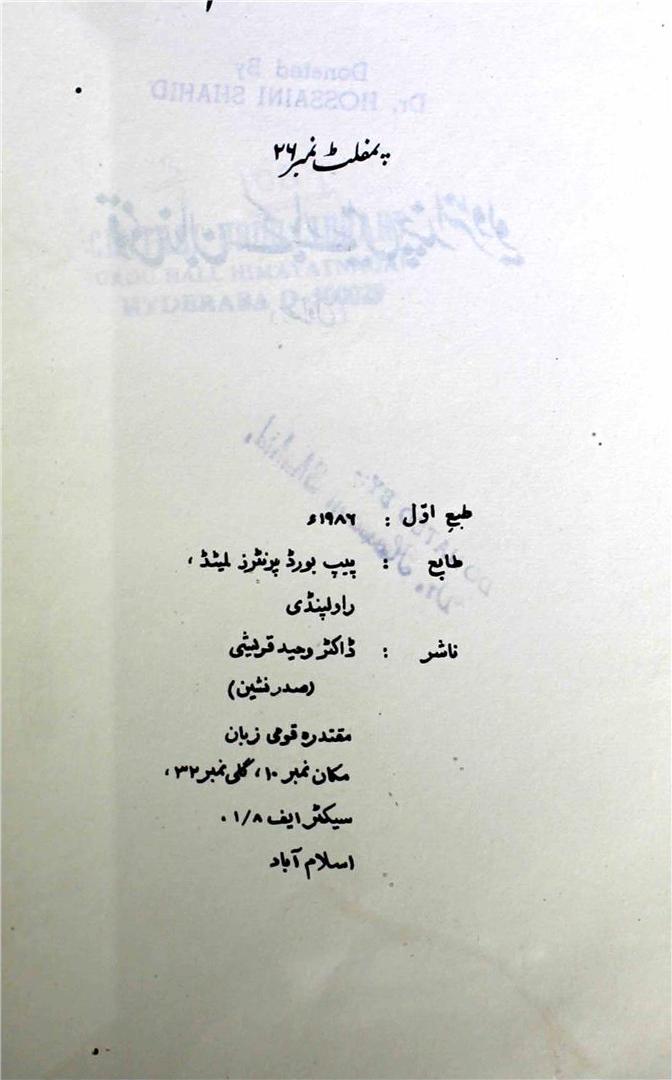 Doneted By
Dr. HOSSAINI SHAHID
پمفلٹ نمبر ۲۶
URDU HALL HIMAYATNAGAR
HYDERABAD
طبع اوّل : ۱۹۸۶ء
طابع : پیپ بورڈ پرنٹرز لمیٹڈ،
راولپنڈی
ناشر : ڈاکٹر وحید قریشی
(صدر نشین)
مقتدرہ قومی زبان
مکان نمبر ۱۰، گلی نمبر ۳۲،
سیکٹر ایف ۸/۱۔
اسلام آباد